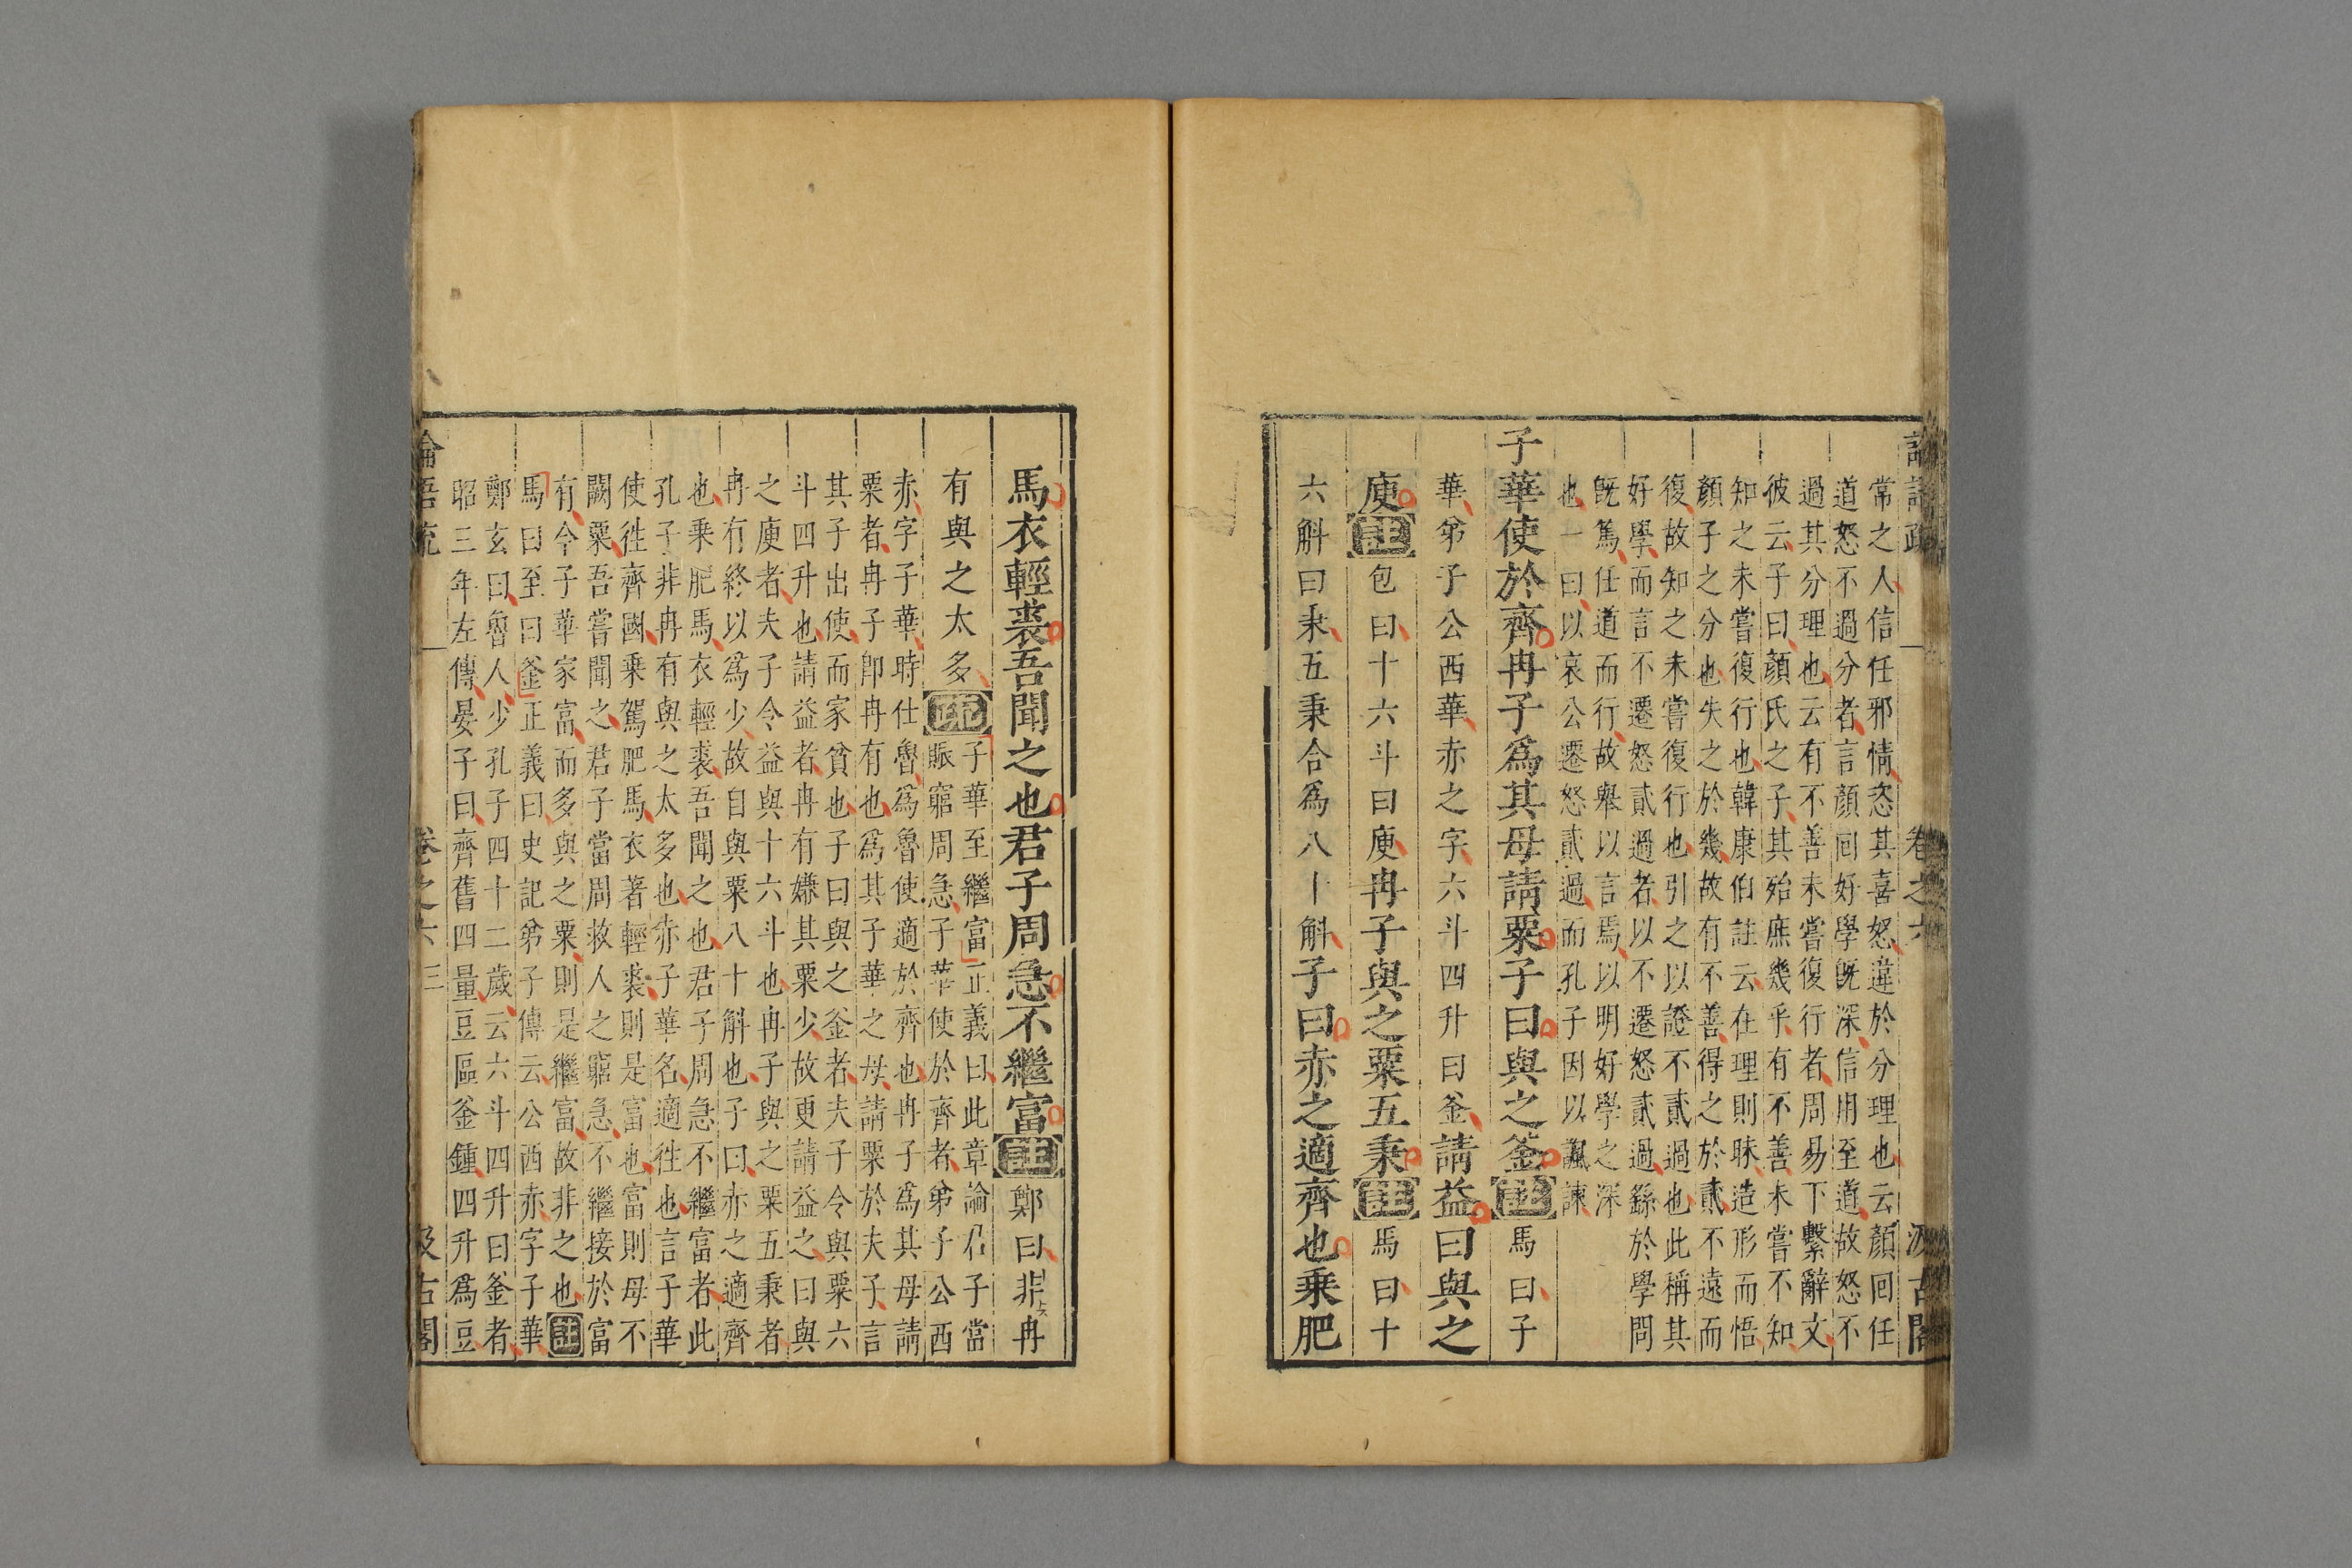 常之人信任邪情恣其喜怒違於分理也云顏回任
道怒不過分者言顏回好學旣深信用至道故怒不
過其分理也云有不善未嘗復行者周易下繫辭文
彼云子曰顏氏之子其殆庶幾乎有不善未嘗不知
知之未嘗復行也韓康伯註云在理則昧造形而悟
顏子之分也失之於幾故有不善得之於貳不遠而
復故知之未嘗復行也引之以證不貳過也此稱其
好學而言不遷怒貳過者以不遷怒貳過繇於學問
旣篤任道而行故舉以言焉以明好學之深
也一曰以哀公遷怒貳過而孔子因以諷諫
子華使於齊冉子爲其母請粟子曰與之釜註馬曰子
華弟子公西華赤之字六斗四升曰釜請益曰與之
庾註包曰十六斗曰庾冉子與之粟五秉註馬曰十
六斛曰秉五秉合爲八十斛子曰赤之適齊也乗肥
馬衣輕裘吾聞之也君子周急不繼富註鄭曰非冉
有與之太多疏
子華至繼富正義曰此章論君子當
賑窮周急子華使於齊者弟子公西
赤字子華時仕魯爲魯使適於齊也冉子爲其母請
粟者冉子卽冉有也爲其子華之母請粟於夫子言
其子出使而家貧也子曰與之釜者夫子令與粟六
斗四升也請益者冉有嫌其粟少故更請益之曰與
之庾者夫子令益與十六斗也冉子與之粟五秉者
冉有終以爲少故自與粟八十斛也子曰赤之適齊
也乗肥馬衣輕裘吾聞之也君子周急不繼富者此
孔子非冉有與之太多也赤子華名適徃也言子華
使徃齊國乗駕肥馬衣著輕裘則是富也富則母不
闕粟吾嘗聞之君子當周救人之窮急不繼接於富
有今子華家富而多與之粟則是繼富故非之也註
馬曰至曰釜正義曰史記弟子傳云公西赤字子華
鄭玄曰魯人少孔子四十二歲云六斗四升曰釜者
昭三年左傳晏子曰齊舊四量豆區釜鍾四升爲豆